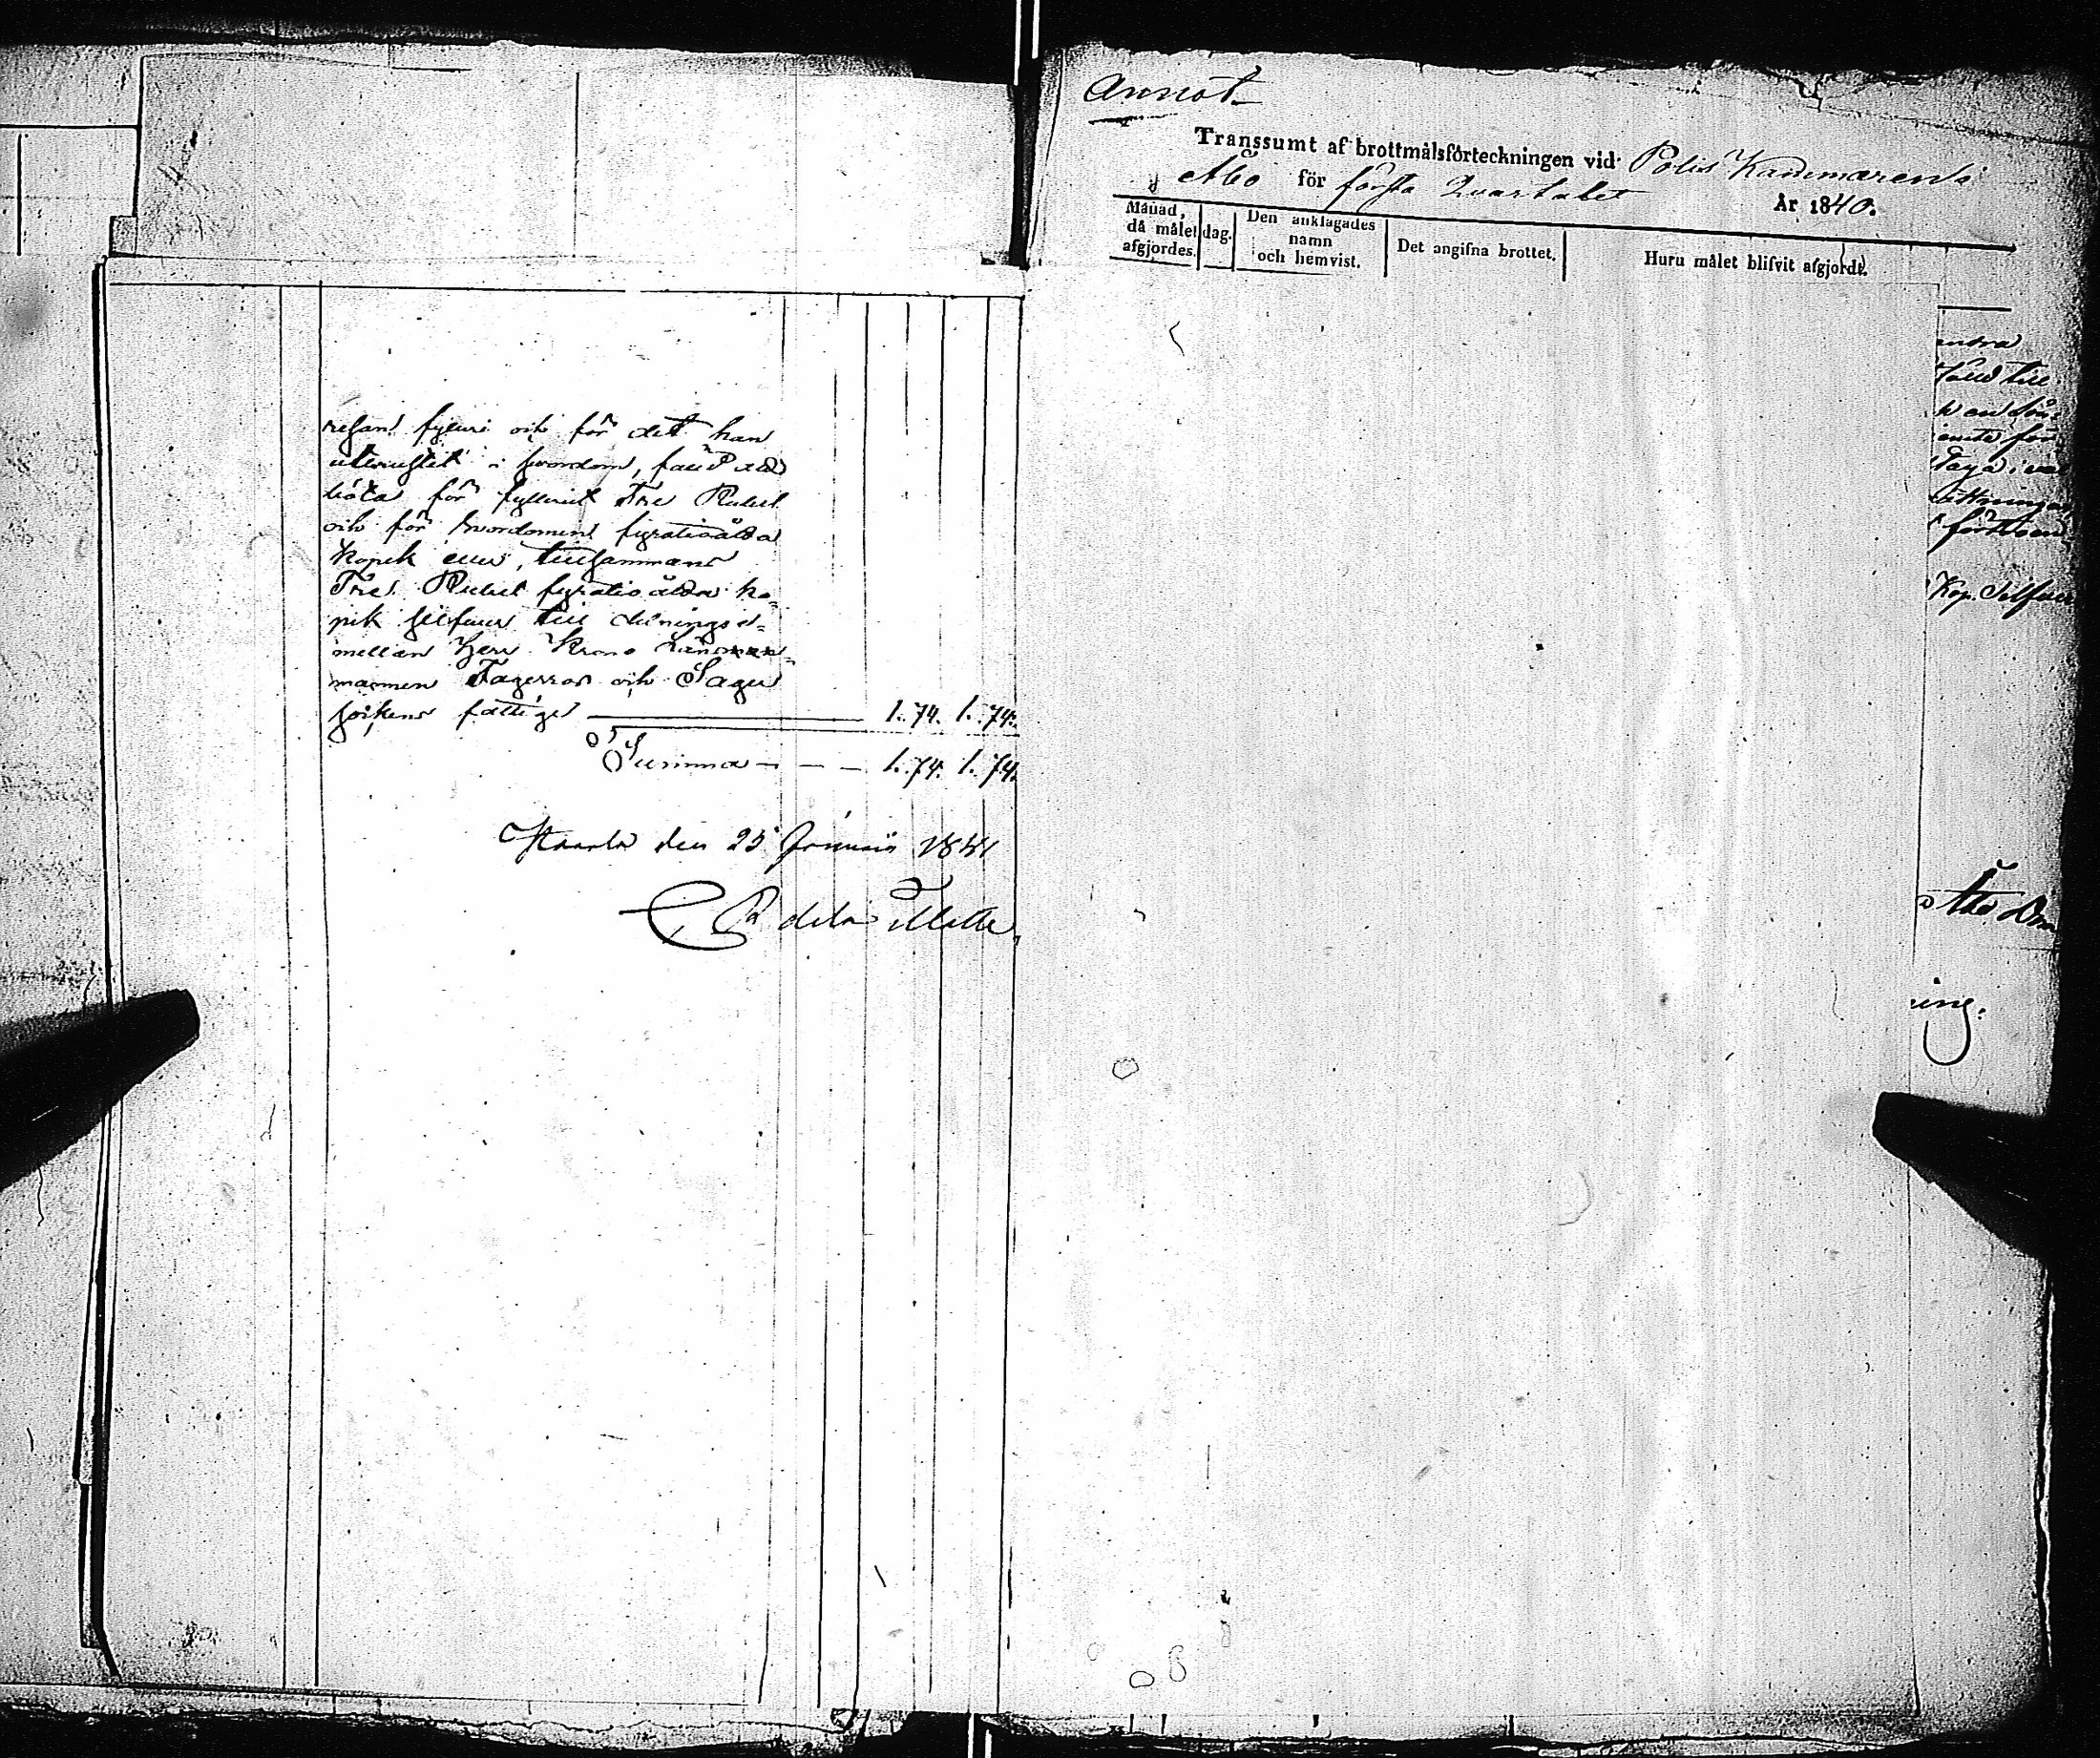 resan fylleri och för det han
utbrustit i svordom, fälld att
böta för fylleriet Tre Rubel
och för svordomen fyratioåtta
kopek eller tillsammans
Tre Rubel fyratioåtta ko-
pek silfver till delning e-
mellan Herr Krono Länsman-
mannen Fagerros och Sagu
sockens fattige 1.74. 1.74.
Summa - - - 1.74. 1.74.
den 25 Januarii 1841
C R de la Motte
Annot.
Transsumt af brottmålsförteckningen vid Polis Kammaren i
Åbo för första Quartalet År 1840.
Månad, då målet afgjordes. dag. Den anklagades namn och hemvist. Det angifna brottet. Huru målet blifvit afgjordt.
andra
fälld till
emte för
taga i
Kop. Silfver
ing.